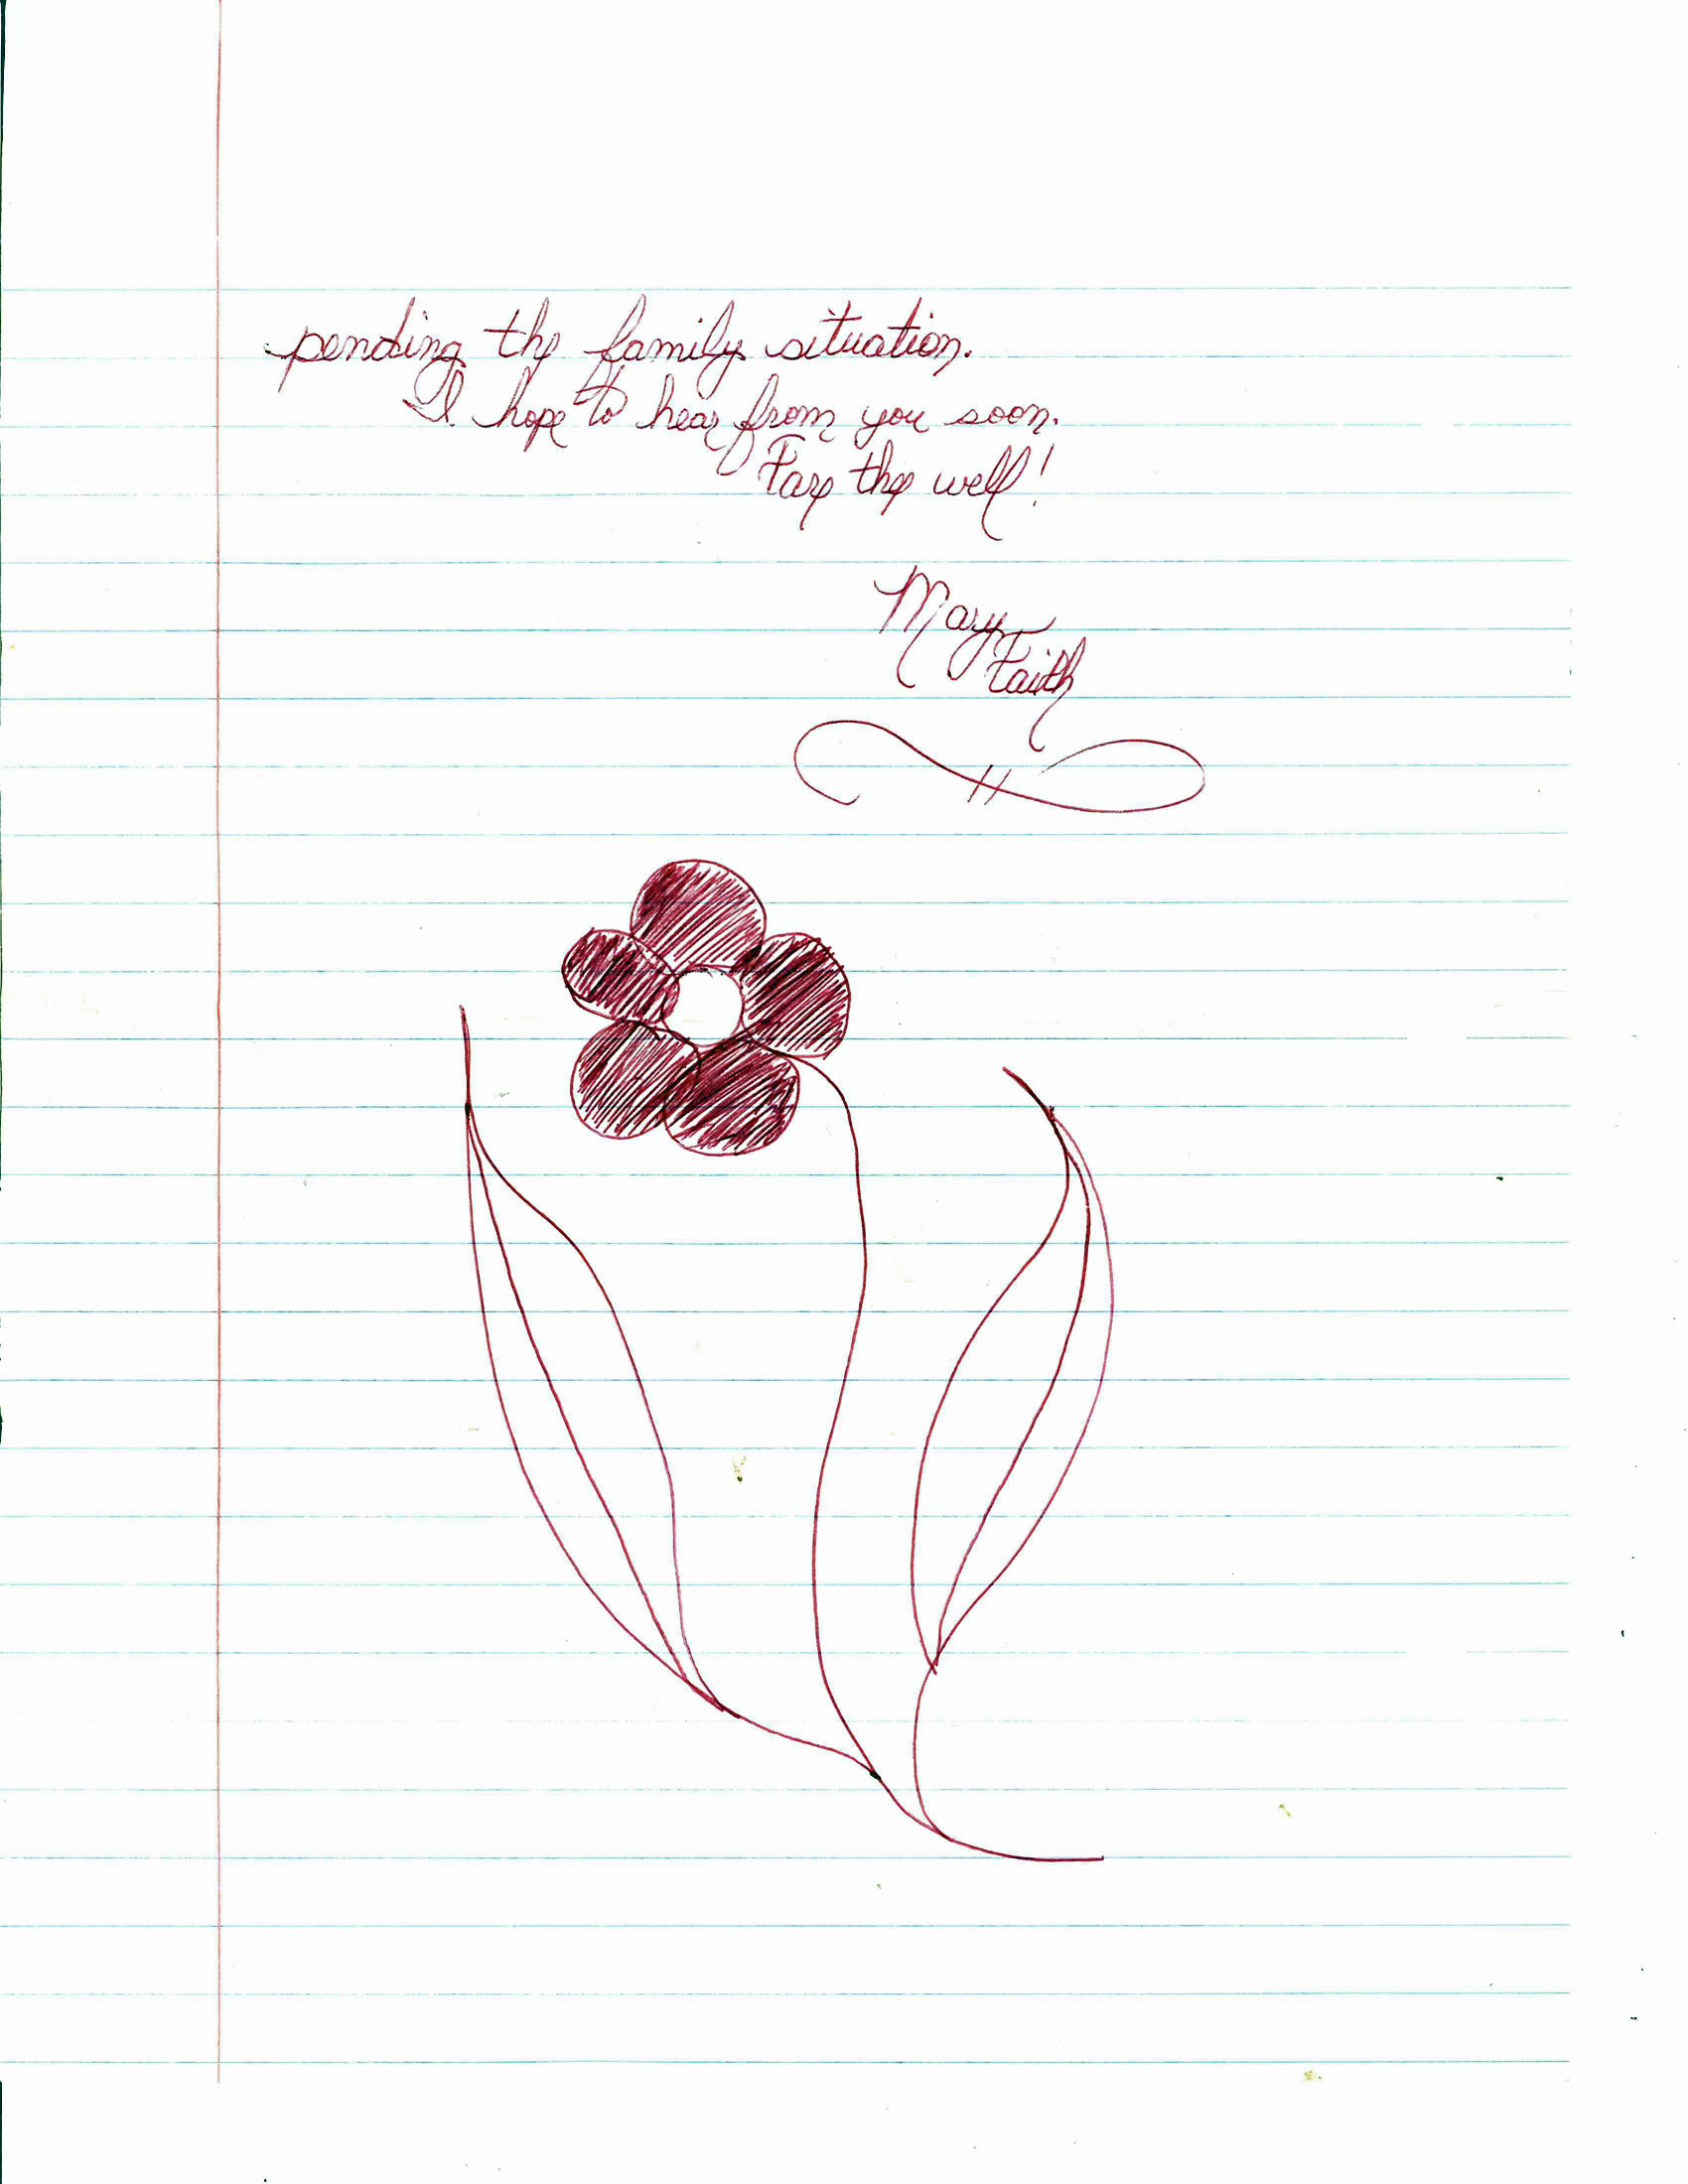 pending the family situation.
I hope to hear from you soon.
Fare the well!
Mary
Faith